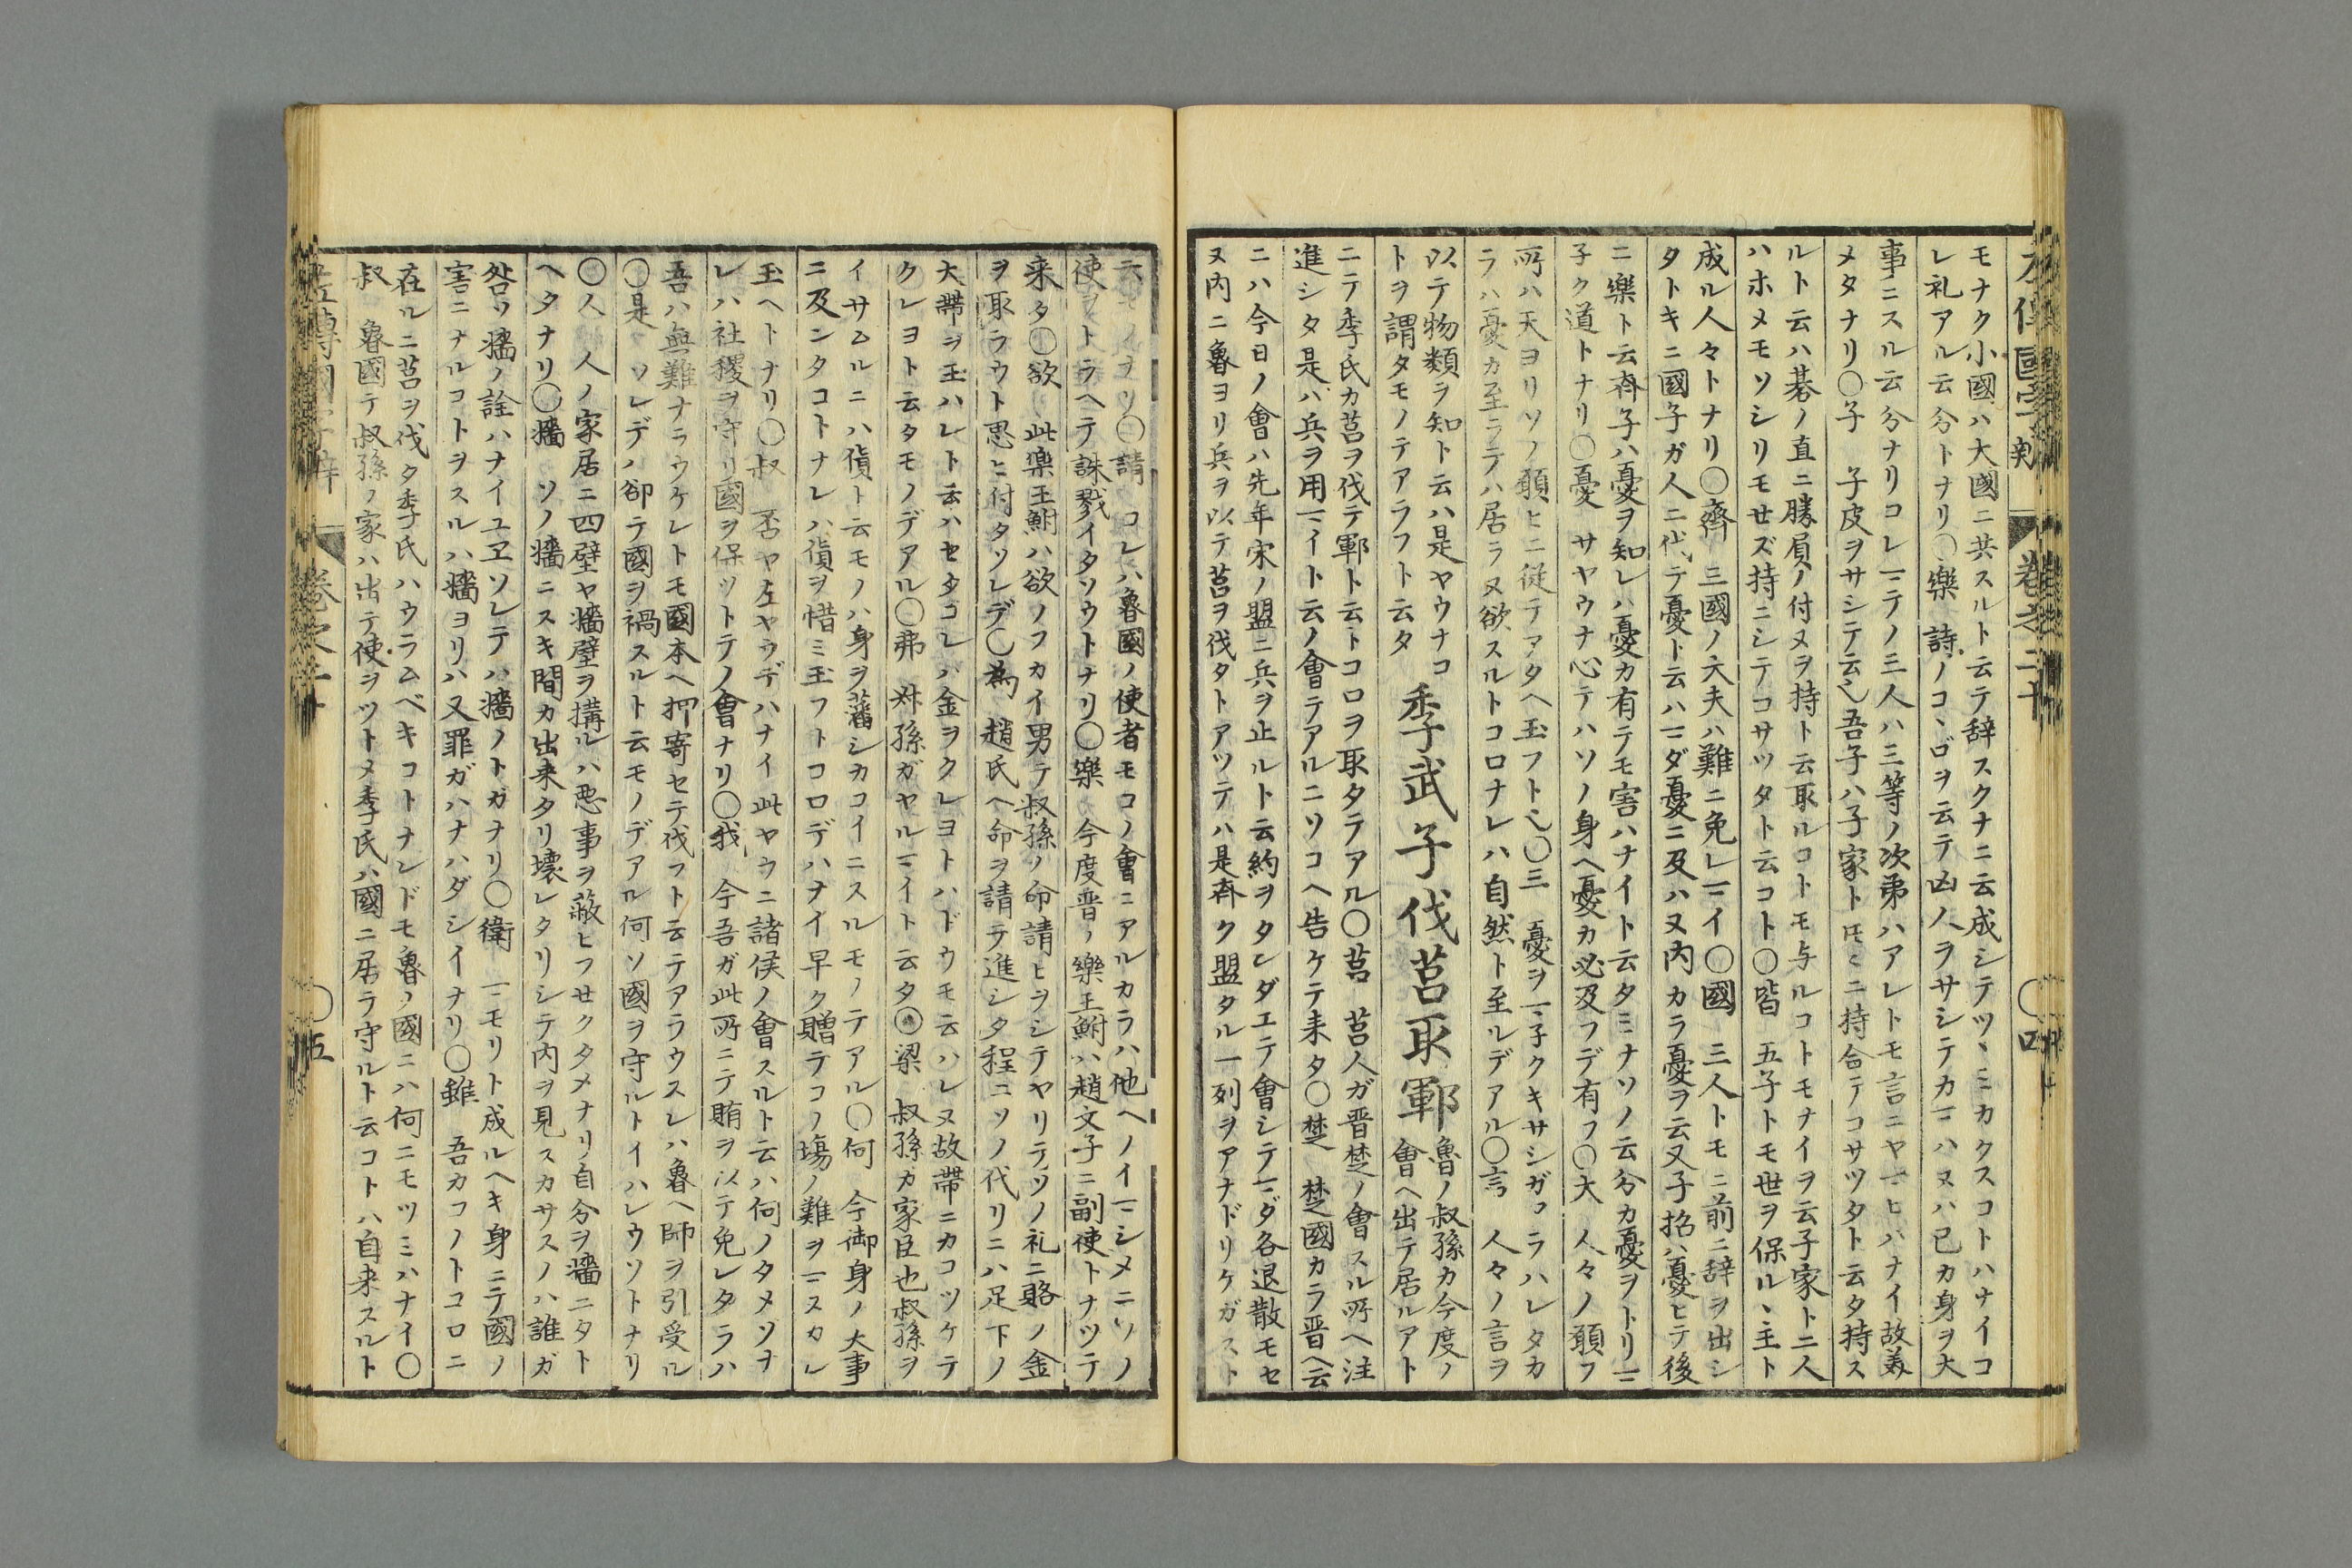 モナク小國ハ大國ニ共スルト云テ辞スクナニ云成シテツヽミカクスコトハナイコ
レ礼アル云分トナリ〇樂 詩ノコヽゴヲ云テ凶人ラサシテカマハヌハ已カ身ヲ大
事ニスル云分ナリコレマテノ三人ハ三等ノ次弟ハアレトモ言ニヤマヒハナイ故美
メタナリ〇子 子皮ヲサシテ云也吾子ハ子家ト持合テコサツタト云タ持ス
ルト云ハ碁ノ直ニ勝負ノ付ヌヲ持ト云取ルコトモ与ルコトモナイヲ云子家ト二人
ハホメモソシリモセズ持ニシテコサツタト云コト〇皆 五子トモ世ヲ保ルヽ主ト
成ル人々トナリ〇齊 三國ノ大夫ハ難ニ免レマイ〇國 三人トモニ前ニ辞ヲ出シ
タトキニ國子ガ人ニ代テ憂ト云ハマダ憂ニ及ハヌ内カラ憂ヲ云又子招ハ憂ヒテ後
ニ樂ト云齊子ハ憂ヲ知レハ憂カ有テモ害ハナイト云タミナソノ云分カ憂ヲトリマ
子ク道トナリ〇憂 サヤウナ心テハソノ身ヘ憂カ必及フデ有フ〇大 人々ノ願フ
所ハ天ヨリソノ願ヒニ従テアタヘ玉フト也〇三 憂ヲマ子クキサシガアラハレタカ
ラハ憂カ至ラテハ居ラヌ欲スルトコロナレハ自然ト至ルデアル〇言 人々ノ言ヲ
以テ物類ヲ知ト云ハ是ヤウナコ
トヲ謂タモノテアラフト云タ
季武子伐莒取鄆
魯ノ叔孫カ今度ノ
會ヘ出テ居ルアト
ニテ季氏カ莒ヲ伐テ鄆ト云トコロヲ取タテアル〇莒 莒人ガ晋楚ノ會スル所ヘ注
進シタ是ハ兵ヲ用マイト云ノ會テアルニソコヘ告ケテ来タ〇楚 楚國カラ晋ヘ云
ニハ今日ノ會ハ先年宋ノ盟ニ兵ヲ止ルト云約ヲタレダエテ會シテマダ各退散モセ
ヌ内ニ魯ヨリ兵ヲ以テ莒ヲ伐タトアツテハ是齊ク盟タル一列ヲアナドリケガスト
〇請 コレハ魯國ノ使者モコノ會ニアルカラハ他ヘノイマシメニソノ
使ヲトラヘテ誅戮イタソウトナリ〇樂 今度晋ノ樂王鮒ハ趙文子ニ副使トナツテ
来タ〇欲 此樂王鮒ハ欲ノフカイ男テ叔孫ノ命請ヒヲシテヤリテソノ礼ニ賂ノ金
ヲ取ラウト思ヒ付タソレデ〇為 趙氏ヘ命ヲ請テ進シタ程ニソノ代リニハ足下ノ
大帯ヲ玉ハレト云ハセタコレハ金ヲクレヨトハドウモ云ハレヌ故帯ニカコツケテ
クレヨト云タモノデアル〇弗 叔孫ガヤルマイト云タ〇梁 叔孫カ家臣也叔孫ヲ
イサムルニハ貨ト云モノハ身ヲ藩シカコイニスルモノテアル〇何 今御身ノ大事
ニ及ンタコトナレハ貨ヲ惜ミ玉フトコロデハナイ早ク贈テコノ塲ノ難ヲマヌカレ
玉ヘトナリ〇叔 否ヤ左ヤウデハナイ此ヤウニ諸侯ノ會スルト云ハ何ノタメソヲ
レハ社稷ヲ守リ國ヲ保ツトテノ會ナリ〇我 今吾ガ此所ニテ賄ヲ以テ免レタラハ
吾ハ無難ナラウケレトモ國本ヘ押寄セテ伐フト云テアラウスレハ魯ヘ師ヲ引受ル
〇是 ソレデハ卻テ國ヲ禍スルト云モノデアル何ソ國ヲ守ルトイハレウソトナリ
〇人 人ノ家居ニ四壁ヤ牆壁ヲ搆ルハ悪事ヲ蔽ヒフセクタメナリ自分ヲ牆ニタト
ヘタナリ〇牆 ソノ牆ニスキ間カ出来タリ壊レタリシテ内ヲ見スカサスノハ誰ガ
咎ソ牆ノ詮ハナイユヱソレテハ牆ノトガナリ〇衛 マモリト成ルヘキ身ニテ國ノ
害ニナルコトヲスルハ牆ヨリハ又罪ガハナハダシイナリ〇雖 吾カコノトコロニ
在ルニ莒ヲ伐タ季氏ハウラムベキコトナレドモ魯ノ國ニハ何ニモツミハナイ〇
叔 魯國テ叔孫ノ家ハ出テ使ヲツトメ季氏ハ國ニ居ラ守ルト云コトハ自来スルト
卷之二十
〇五